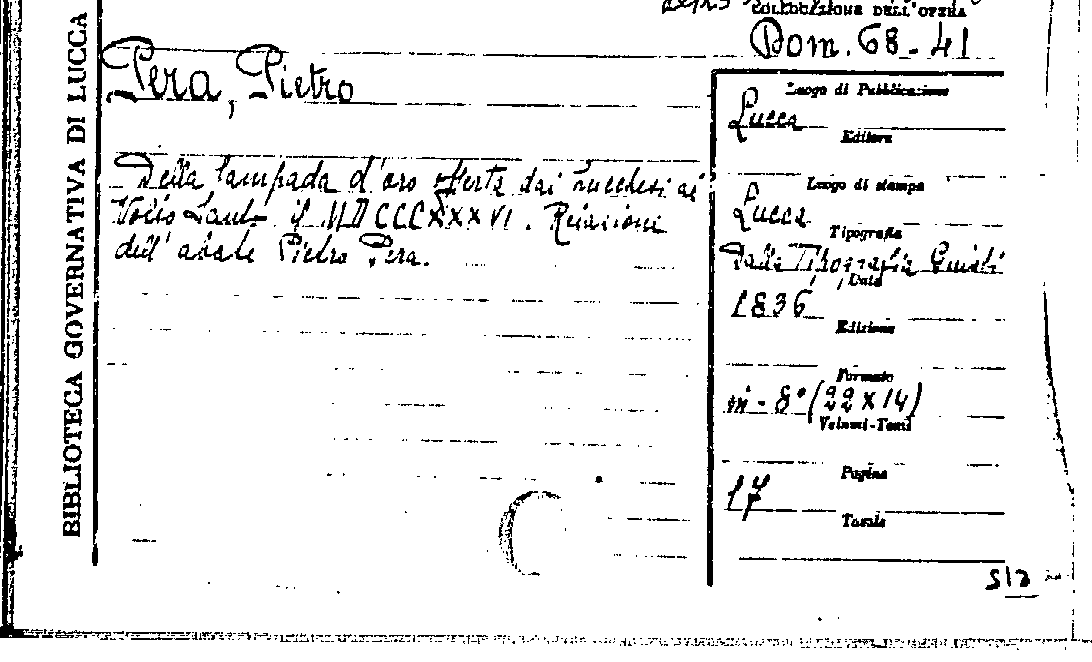 BIBLIOTECA GOVERNATIVA DI LUCCA
COLLOCAZIONE DELL'OPERA
Dom. 68-41
Pera, Pietro
Della lampada d'oro offerta dai Lucchesi al
Volto Santo il MDCCCXXXVI. Relazione
dell'abate Pietro Pera.
Luogo di Pubblicazione
Lucca
Editore
Luogo di stampa
Lucca
Tipografia
Dalla Tipografia Giusti
Data
1836
Edizione
Formato
in-8° (22x14)
Volumi-Tomi
Pagine
17
Tavole